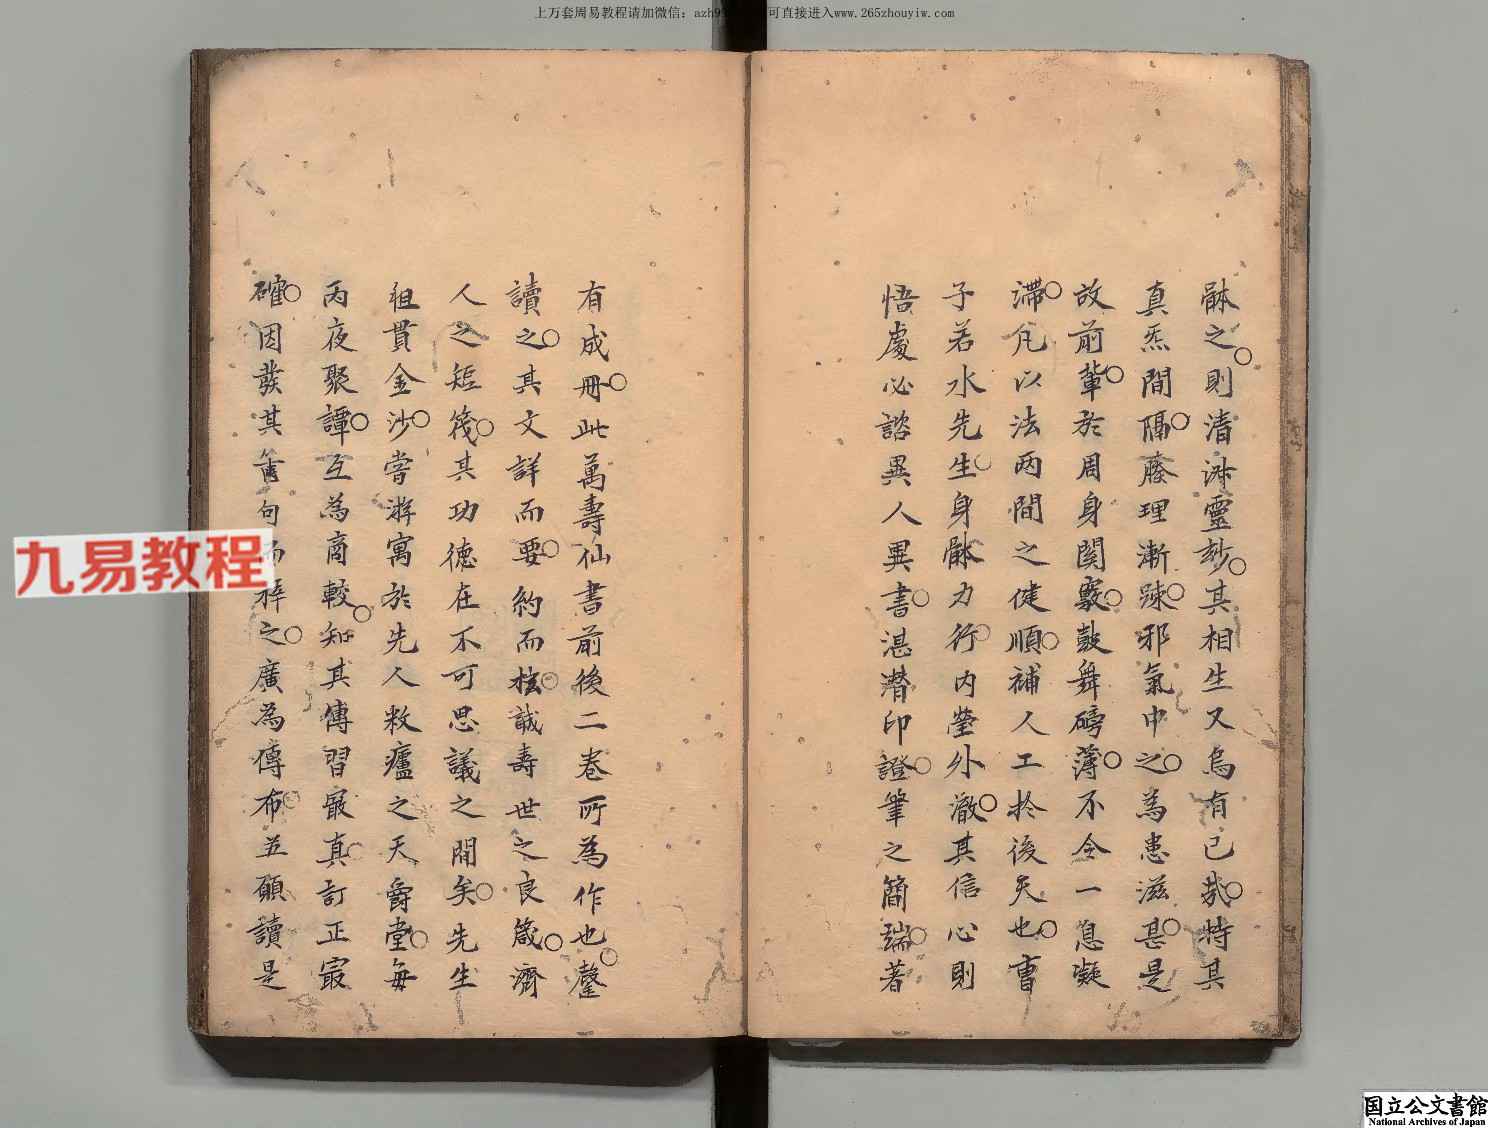 上万套周易教程请加微信：azh9 可直接进入www.265zhouyiw.com
骵之則清淑靈妙其相生又烏有已哉特其
真炁間隔膝理漸踈邪氣中之為患滋甚是
故前輩於周身関竅鼓舞磅薄不令一息凝
滯凢以法两間之健順補人工扵後天也曹
子若水先生身骵力行内瑩外澈其信心則
悟處必諮異人異書湛潜印證筆之簡瑞著
有成冊此萬壽仙書前後二卷所為作也罄
讀之其文詳而要約而核誠壽世之良箴濟
人之短筏其功德在不可思議之間矣先生
祖貫金沙嘗游寓於先人敉瘟之天爵堂每
丙夜聚譚互為商較知其傳習㝡真訂正㝡
確因發其舊句而梓之廣為傳布并願讀是
九易教程
国立公文書館
National Archives of Japan